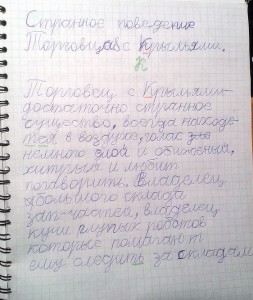 Странное поведение
Торговца с Крыльями.
К
Торговец с Крыльями-
достаточно странное
существо, всегда находе-
тся в воздухе, голос
немного злой и обиженый,
хитрый и любит
поговорить. Владелец
большого склада
зап-частей, владелец
кучи глупых роботов
которые помагают
ему следить за складам